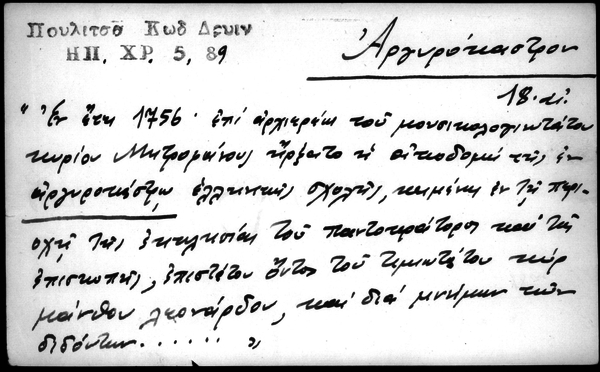 Πουλιτσα Κωδ Δρυιν
ΗΠ. ΧΡ. 5, 89
Ἀργυρόκαστρον
18. αἰ.
"Ἐν ἔτει 1756. ἐπί ἀρχιερέως τοῦ μουσικολογιωτάτου
κυρίου Μητροφάνους ἤρξατο ἡ οἰκοδομή τῆς ἐν
ἀργυροκάστρῳ ἑλληνικῆς σχολῆς, κειμένης ἐν τῇ περι-
οχῇ τῆς ἐκκλησίας τοῦ παντοκράτορος καί τῆς
ἐπισκοπῆς, ἐπιστάτου ὄντος τοῦ τιμιωτάτου κύρ
μάνθου λεονάρδου, καί διά μνήμην τῶν
διδόντων......"